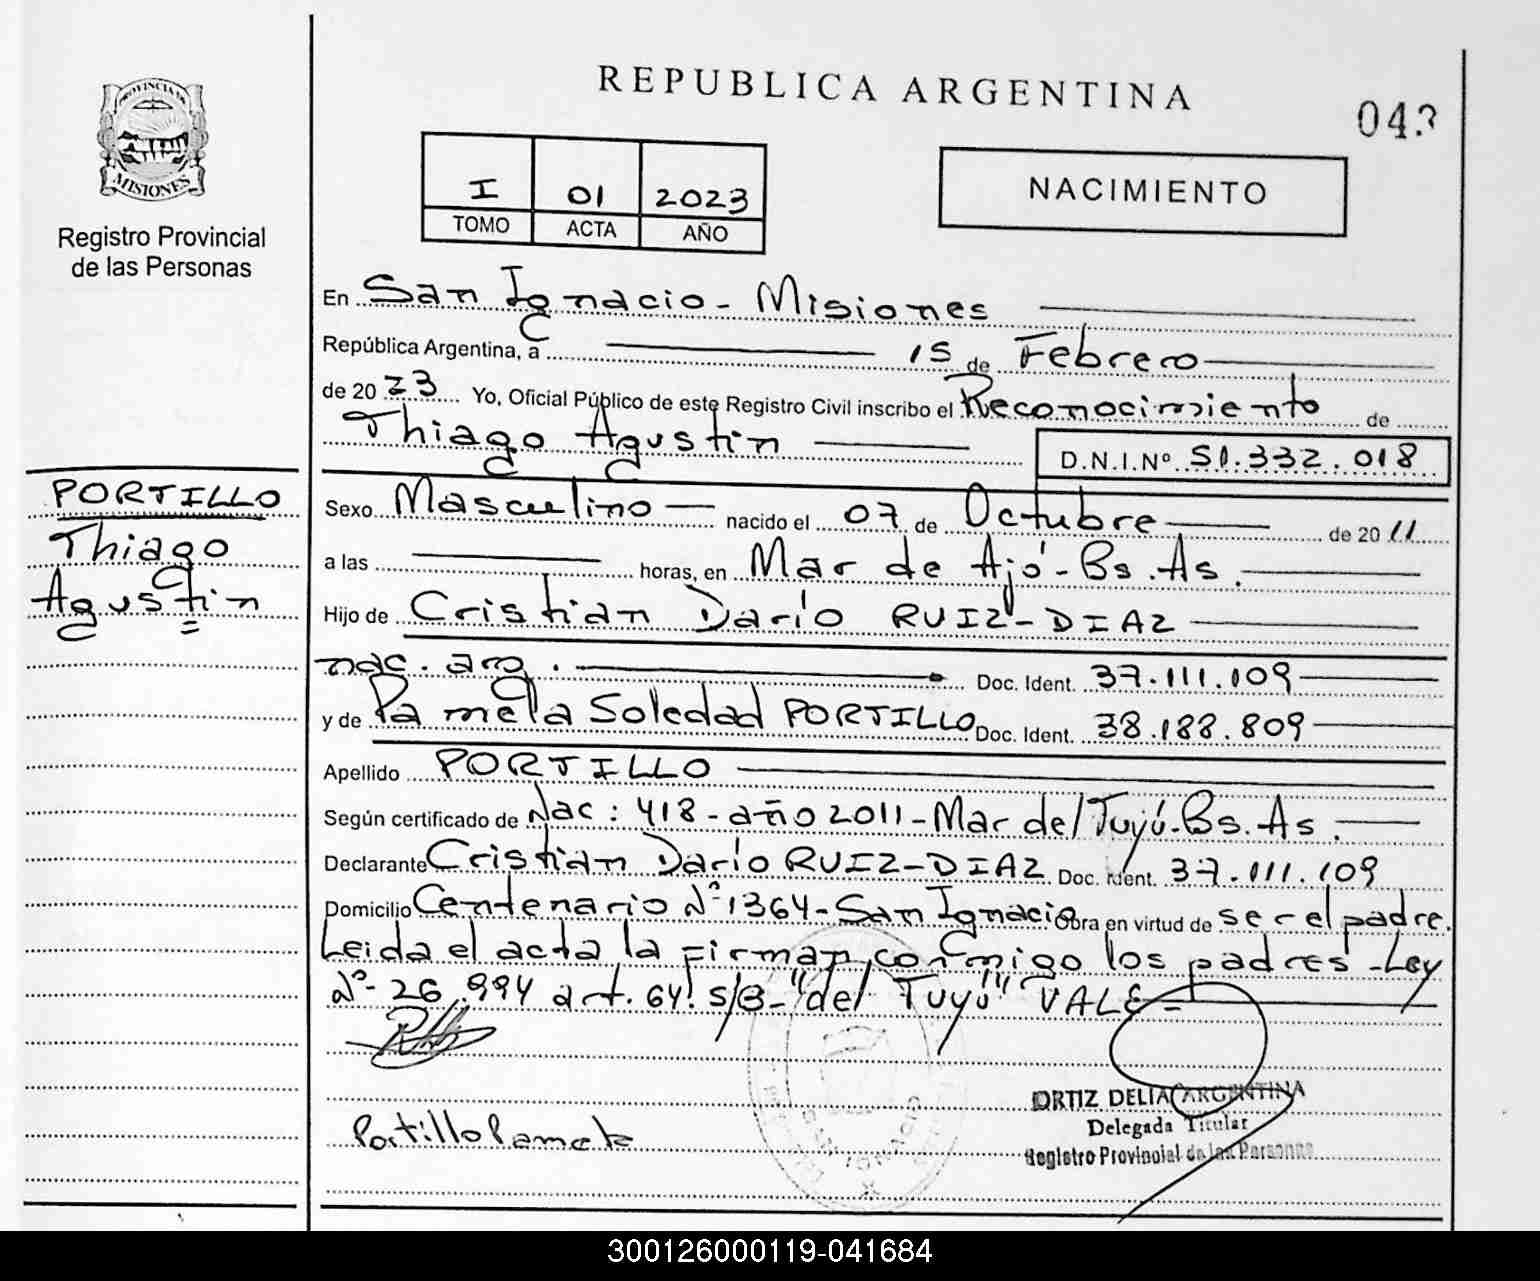 REPUBLICA ARGENTINA
043
PROVINCIA DE
MISIONES
Registro Provincial
de las Personas
I 01 2023
TOMO ACTA AÑO
NACIMIENTO
En San Ignacio - Misiones
República Argentina, a 15 de Febrero
de 2023 Yo, Oficial Público de este Registro Civil inscribo el Reconocimiento de
Thiago Agustin
D.N.I.Nº 51.332.018
PORTILLO
Thiago
Agustin
Sexo Masculino nacido el 07 de Octubre de 2011
a las horas, en Mar de Ajó - Bs. As.
Hijo de Cristian Darío RUIZ-DIAZ
nac. arg. Doc. Ident. 37.111.109
y de Pamela Soledad PORTILLO Doc. Ident. 38.188.809
Apellido PORTILLO
Según certificado de Nac: 418 - año 2011 - Mar del Tuyú - Bs. As.
Declarante Cristian Darío RUIZ-DIAZ Doc. Ident. 37.111.109
Domicilio Centenario Nº 1364 - San Ignacio Obra en virtud de ser el padre.
Leida el acta la firman conmigo los padres - Ley
Nº - 26.994 art. 64. S/B - "del Tuyú" VALE =
ORTIZ DELIA ARGENTINA
Delegada Titular
Registro Provincial de las Personas
Portillo Pamela
300126000119-041684